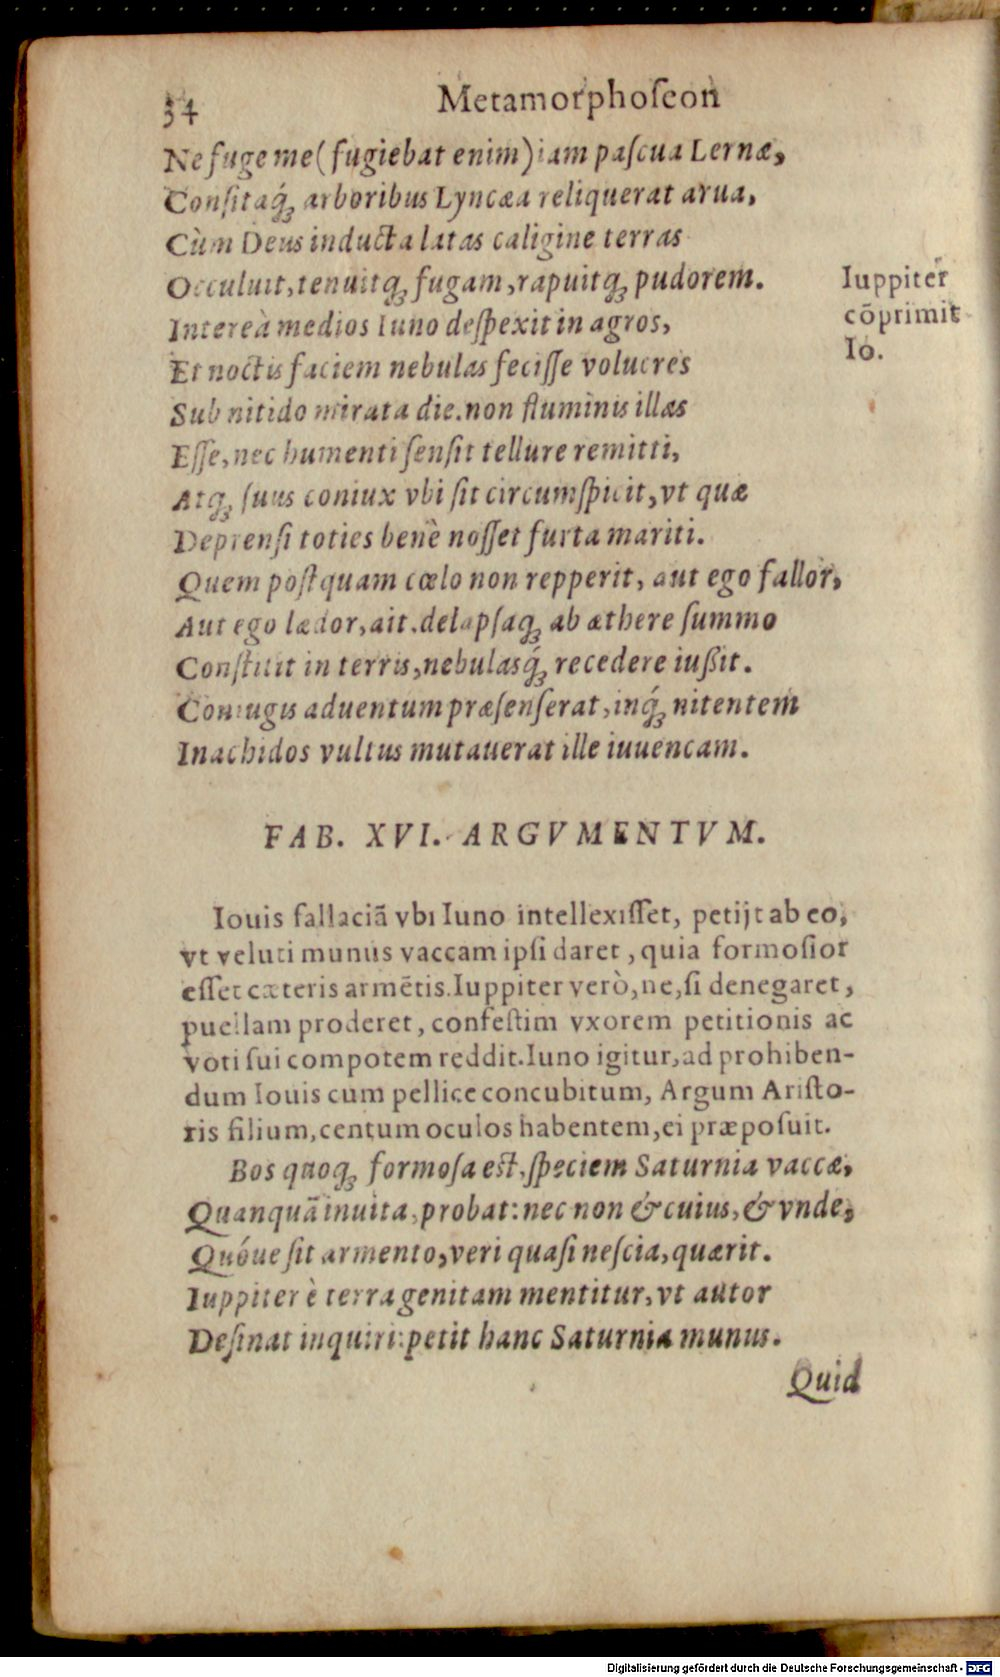 34 Metamorphoſeon
Ne fuge me (fugiebat enim) iam paſcua Lernæ,
Conſitaq́; arboribus Lyncæa reliquerat arua,
Cùm Deus inducta latas caligine terras
Occuluit, tenuitq; fugam, rapuitq; pudorem.
Iuppiter
cōprimit
Io.
Intereà medios Iuno deſpexit in agros,
Et noctis faciem nebulas feciſſe volucres
Sub nitido mirata die. non fluminis illas
Eſſe, nec humenti ſenſit tellure remitti,
Atq; ſuus coniux vbi ſit circumſpicit, vt quæ
Deprenſi toties benè noſſet furta mariti.
Quem poſtquam cœlo non repperit, aut ego fallor,
Aut ego lædor, ait. delapſaq; ab æthere ſummo
Conſtitit in terris, nebulasq́; recedere iußit.
Coniugis aduentum præſenſerat, inq́; nitentem
Inachidos vultus mutauerat ille iuuencam.
FAB. XVI. ARGVMENTVM.
Iouis fallaciā vbi Iuno intellexiſſet, petijt ab eo,
vt veluti munus vaccam ipſi daret, quia formoſior
eſſet cæteris armētis. Iuppiter verò, ne, ſi denegaret,
puellam proderet, confeſtim vxorem petitionis ac
voti ſui compotem reddit. Iuno igitur, ad prohiben-
dum Iouis cum pellice concubitum, Argum Ariſto-
ris filium, centum oculos habentem, ei præpoſuit.
Bos quoq; formoſa eſt, ſpeciem Saturnia vaccæ,
Quanquā inuita, probat: nec non & cuius, & vnde,
Quóue ſit armento, veri quaſi neſcia, quærit.
Iuppiter è terra genitam mentitur, vt autor
Deſinat inquiri: petit hanc Saturnia munus.
Quid
Digitalisierung gefördert durch die Deutsche Forschungsgemeinschaft - DFG